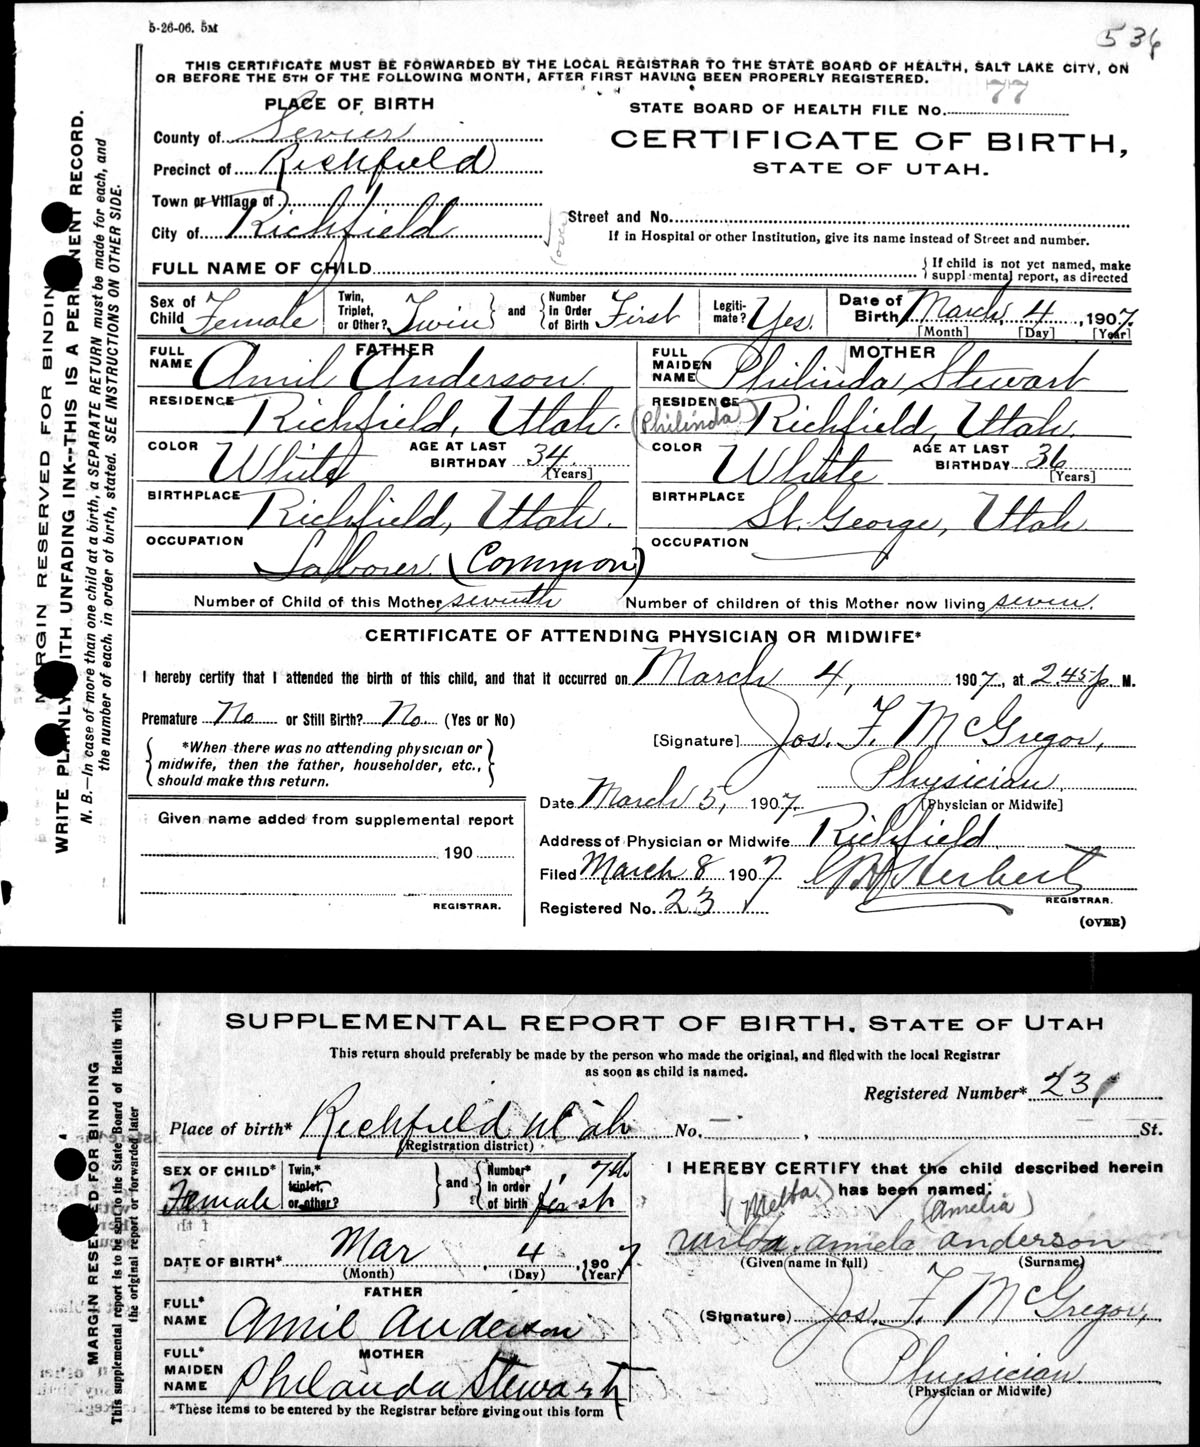 5-26-06. 5M
536
THIS CERTIFICATE MUST BE FORWARDED BY THE LOCAL REGISTRAR TO THE STATE BOARD OF HEALTH, SALT LAKE CITY, ON
OR BEFORE THE 5TH OF THE FOLLOWING MONTH, AFTER FIRST HAVING BEEN PROPERLY REGISTERED.
PLACE OF BIRTH
County of Sevier
Precinct of Richfield
Town or Village of
City of Richfield
STATE BOARD OF HEALTH FILE No. 77
CERTIFICATE OF BIRTH,
STATE OF UTAH.
Street and No.
(over)
If in Hospital or other Institution, give its name instead of Street and number.
FULL NAME OF CHILD
If child is not yet named, make
supplemental report, as directed
Sex of Child Female
Twin, Triplet, or Other? Twin and Number in Order of Birth First
Legitimate? Yes.
Date of Birth March 4, 1907.
[Month] [Day] [Year]
FATHER
FULL NAME Amil Anderson
RESIDENCE Richfield, Utah.
COLOR White AGE AT LAST BIRTHDAY 34 [Years]
BIRTHPLACE Richfield, Utah.
OCCUPATION Laborer. (Common)
MOTHER
FULL MAIDEN NAME Philinda Stewart
(Philinda)
RESIDENCE Richfield, Utah.
COLOR White AGE AT LAST BIRTHDAY 36 [Years]
BIRTHPLACE St. George, Utah
OCCUPATION
Number of Child of this Mother seventh Number of children of this Mother now living seven.
CERTIFICATE OF ATTENDING PHYSICIAN OR MIDWIFE*
I hereby certify that I attended the birth of this child, and that it occurred on March 4, 1907, at 2.45 p M.
Premature No or Still Birth? No. (Yes or No)
*When there was no attending physician or
midwife, then the father, householder, etc.,
should make this return.
[Signature] Jos. F. McGregor,
Physician.
[Physician or Midwife]
Date March 5, 1907.
Address of Physician or Midwife Richfield.
Filed March 8 1907
Herbert
REGISTRAR.
Registered No. 23
(OVER)
Given name added from supplemental report
190
REGISTRAR.
MARGIN RESERVED FOR BINDING
WRITE PLAINLY WITH UNFADING INK--THIS IS A PERMANENT RECORD.
N. B.—In case of more than one child at a birth, a SEPARATE RETURN must be made for each, and
the number of each, in order of birth, stated. SEE INSTRUCTIONS ON OTHER SIDE.
SUPPLEMENTAL REPORT OF BIRTH, STATE OF UTAH
This return should preferably be made by the person who made the original, and filed with the local Registrar
as soon as child is named.
Registered Number* 23
Place of birth* Richfield Utah No. St.
(Registration district)
SEX OF CHILD* Female
Twin,* triplet, or other? and Number* in order of birth first 7th
DATE OF BIRTH* Mar 4, 1907
(Month) (Day) (Year)
FATHER
FULL* NAME Amil Anderson
MOTHER
FULL* MAIDEN NAME Philanda Stewart
*These items to be entered by the Registrar before giving out this form
I HEREBY CERTIFY that the child described herein
has been named:
(Melba) (Amelia)
Anderson
(Given name in full) (Surname)
(Signature) Jos. F. McGregor,
Physician
(Physician or Midwife)
MARGIN RESERVED FOR BINDING
This supplemental report is to be sent to the State Board of Health with
the original report or forwarded later